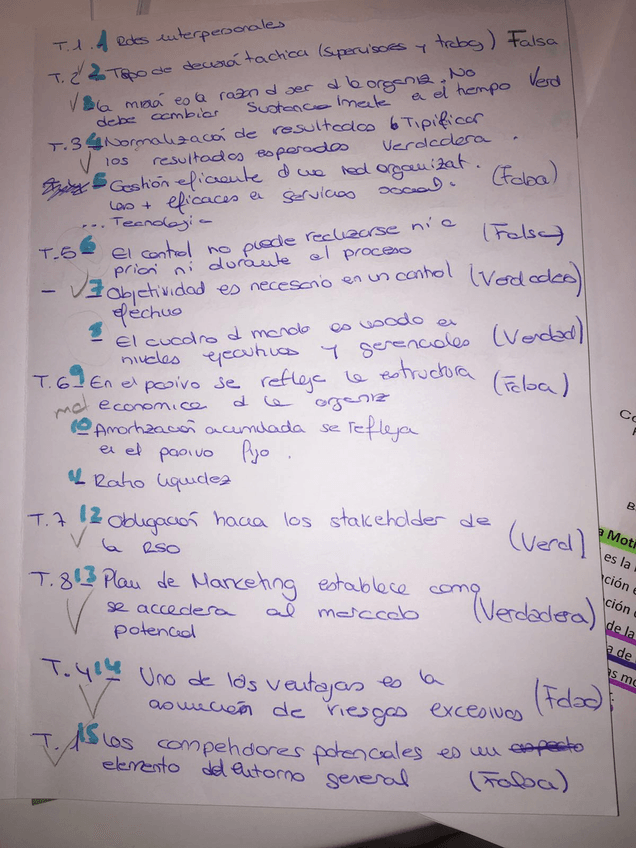 T.1. 1 Redes interpersonales
T.2 2 Tipo de decisión táctica (supervisores y trabaj) Falsa
3 La misión es la razón d ser d la organiz. No
debe cambiar sustancialmente en el tiempo Verd
T.3 4 Normalización de resultados Tipificar
los resultados esperados Verdadera.
5 Gestión eficiente d una red organizat.
las + eficaces en servicios social. (Falsa)
... Tecnología
T.5 6 El control no puede realizarse ni a (Falsa)
priori ni durante el proceso
- 7 Objetividad es necesario en un control (Verdadera)
efectivo
8 - El cuadro d mando es usado en (Verdad)
niveles ejecutivos y gerenciales
T.6 9 - En el pasivo se refleja la estructura (Falsa)
mal economica d la organiz
10 Amortización acumulada se refleja
en el pasivo fijo.
11 - Ratio liquidez
T.7 12 Obligación hacia los stakeholder de
la RSO (Verd)
T.8 13 Plan de Marketing establece como
se accedera al mercado (Verdadera)
potencial
T.4 14 - Uno de los ventajas es la
asunción de riesgos excesivos (Falsa)
T.1 15 Los competidores potenciales es un
elemento del entorno general (Falsa)
Co
B
a Moti
es la
ción e
ción
de la
a de
as mo